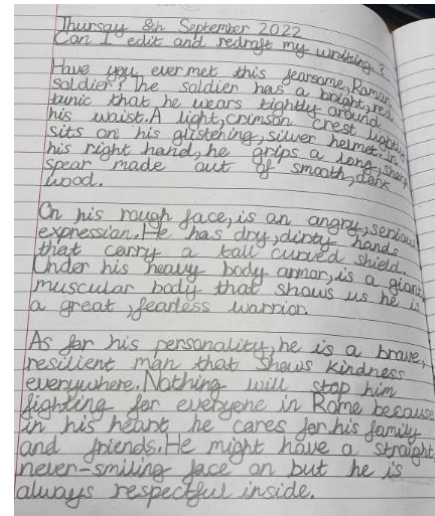 Thursay 8th September 2022
Can I edit and redraft my writing?
Have you ever met this fearsome, Roman
soldier? The soldier has a bright, red
tunic that he wears tightly around
his waist. A light, crimson crest lightly
sits on his glistening, silver helmet. In
his right hand, he grips a long, sharp
spear made out of smooth, dark
wood.
On his rough face, is an angry, serious
expression. He has dry, dirty hands
that carry a tall curved shield.
Under his heavy body armor, is a giant,
muscular body that shows us he is
a great, fearless warrior.
As for his personality, he is a brave,
resilient man that shows kindness
everywhere. Nothing will stop him
fighting for everyone in Rome because
in his heart he cares for his family
and friends. He might have a straight
never-smiling face on but he is
always respectful inside.